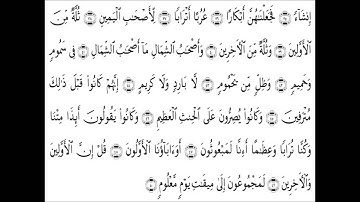 إِنشَآءً ۝٣٥ فَجَعَلْنَٰهُنَّ أَبْكَارًا ۝٣٦ عُرُبًا أَتْرَابًا ۝٣٧ لِّأَصْحَٰبِ ٱلْيَمِينِ ۝٣٨ ثُلَّةٌ مِّنَ
ٱلْأَوَّلِينَ ۝٣٩ وَثُلَّةٌ مِّنَ ٱلْأٓخِرِينَ ۝٤٠ وَأَصْحَٰبُ ٱلشِّمَالِ مَآ أَصْحَٰبُ ٱلشِّمَالِ ۝٤١ فِى سَمُومٍ
وَحَمِيمٍ ۝٤٢ وَظِلٍّ مِّن يَحْمُومٍ ۝٤٣ لَّا بَارِدٍ وَلَا كَرِيمٍ ۝٤٤ إِنَّهُمْ كَانُوا۟ قَبْلَ ذَٰلِكَ
مُتْرَفِينَ ۝٤٥ وَكَانُوا۟ يُصِرُّونَ عَلَى ٱلْحِنثِ ٱلْعَظِيمِ ۝٤٦ وَكَانُوا۟ يَقُولُونَ أَئِذَا مِتْنَا
وَكُنَّا تُرَابًا وَعِظَٰمًا أَءِنَّا لَمَبْعُوثُونَ ۝٤٧ أَوَءَابَآؤُنَا ٱلْأَوَّلُونَ ۝٤٨ قُلْ إِنَّ ٱلْأَوَّلِينَ
وَٱلْأٓخِرِينَ ۝٤٩ لَمَجْمُوعُونَ إِلَىٰ مِيقَٰتِ يَوْمٍ مَّعْلُومٍ ۝٥٠